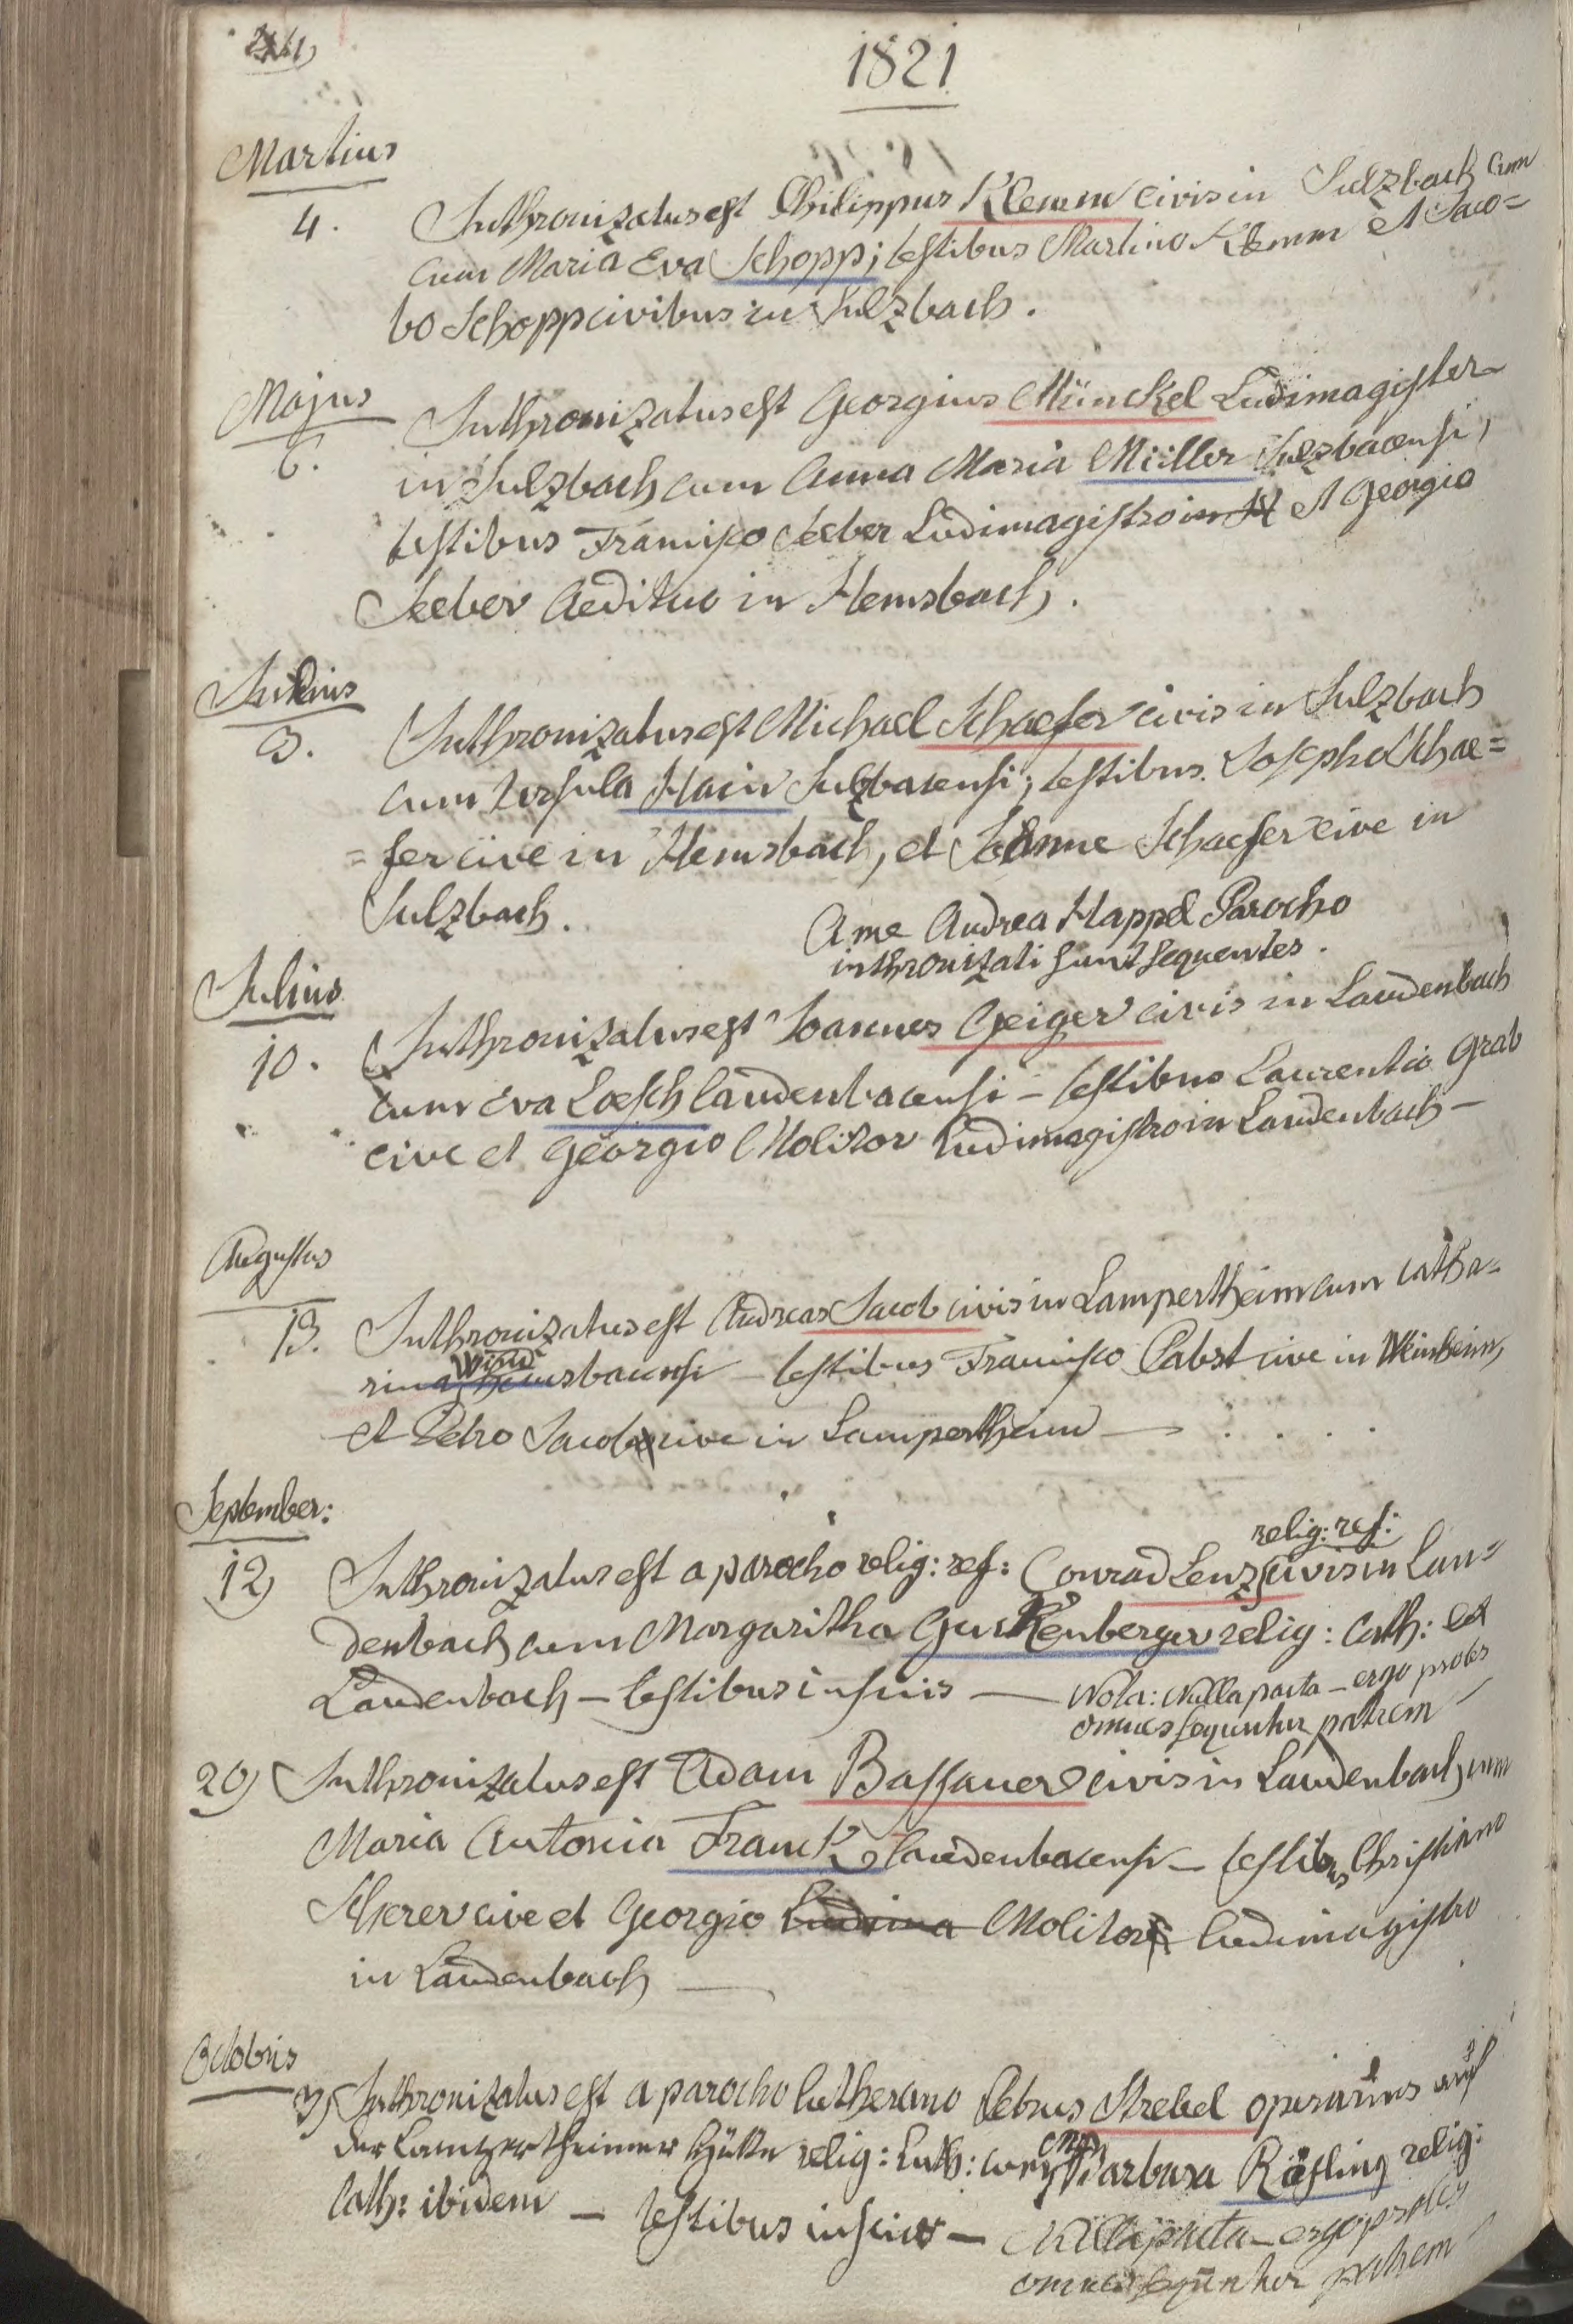 1821
Martius
4. Inthronizatus est Philippus Klemm civis in Sulzbach cum
cum Maria Eva Schopp; testibus Martino Klemm et Jaco=
bo Schopp civibus in Sulzbach.
Majus
6. Inthronizatus est Georgius Münckel Ludimagister
in Sulzbach cum Anna Maria Müller Sulzbacensi,
testibus Francisco Seeber Ludimagistro et Georgio
Seeber Aedituo in Hemsbach.
3. Inthronizatus est Michael Schaefer civis in Sulzbach
cum Ursula Hain Sulzbacensi; testibus Josepho Schae=
=fer cive in Hemsbach, et Joanne Schaefer cive in
Sulzbach.
A me Andrea Happel Parocho
inthronizati sunt sequentes.
Julius
10. Inthronizatus est Joannes Geiger civis in Laudenbach
cum Eva Loesch laudenbacensi – testibus Laurentio Grab
cive et Georgio Molitor Ludimagistro in Laudenbach –
Augustus
13. Inthronizatus est Andreas Jacob civis in Lampertheim cum Catha=
rina hemsbacensi – testibus Francisco Pabst cive in Weinheim,
et Petro Jacob cive in Lampertheim –
September:
12) Inthronizatus est a parocho relig: ref: Conrad Lenz relig: ref: civis in Lau=
denbach cum Margaritha Gurkenberger relig: cath: ex
Laudenbach – testibus insciis – Nota: Nulla pacta – ergo proles
omnes sequuntur patrem –
20) Inthronizatus est Adam Bassauer civis in Laudenbach cum
Maria Antonia Franck laudenbacensi – testibus Christiano
Scherer cive et Georgio Ludima Molitor ludimagistro
in Laudenbach –
Octobris
3) Inthronizatus est a parocho lutherano Petrus Strebel operarius auf
der Lampertheimer Hütte relig: Luth: cum Barbara Röfling relig:
Cath: ibidem – testibus insciis – Nulla pacta – ergo proles
omnes sequuntur patrem –